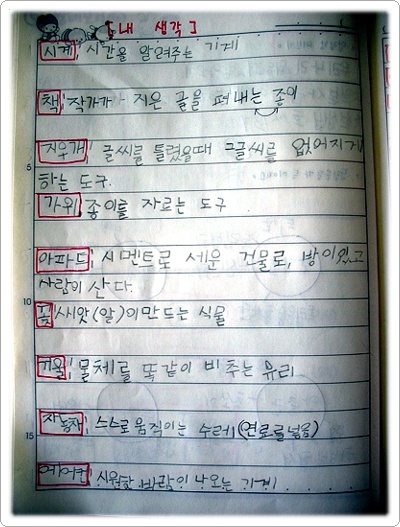 [내 생각]
시계; 시간을 알려주는 기계
책; 작가가 지은 글을 펴내는 종이
지우개; 글씨를 틀렸을때 그글씨를 없어지게
5
하는 도구.
가위; 종이를 자르는 도구
아파트; 시멘트로 세운 건물로, 방이있고
10
사람이 산다.
꽃; 씨앗(알)이만드는 식물
거울; 물체를 똑같이 비추는 유리
자동차; 스스로움직이는 수레(연료를넣음)
15
에어컨; 시원한 바람이 나오는 기계